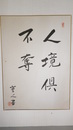 人境俱
不奪